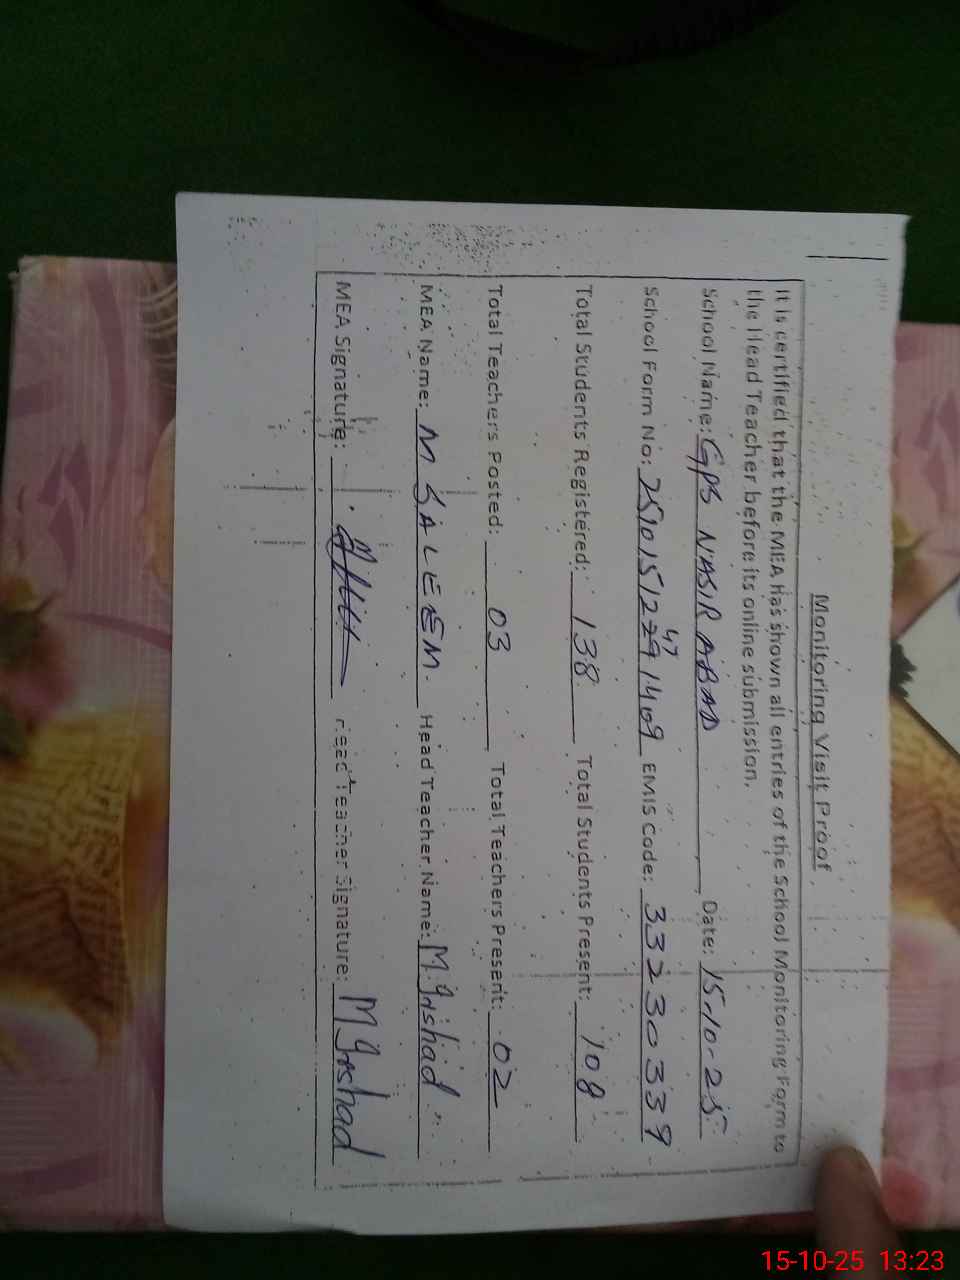 Monitoring Visit Proof
It is certified that the MEA has shown all entries of the School Monitoring Form to
the Head Teacher before its online submission.
School Name: GPS NASIR ABAD Date: 15-10-25
School Form No: EMIS Code: 33230339
Total Students Registered: 138 Total Students Present: 108
Total Teachers Posted: 03 Total Teachers Present: 02
MEA Name: M SALEEM. Head Teacher Name: M
MEA Signature: Head Teacher Signature: M
15-10-25 13:23